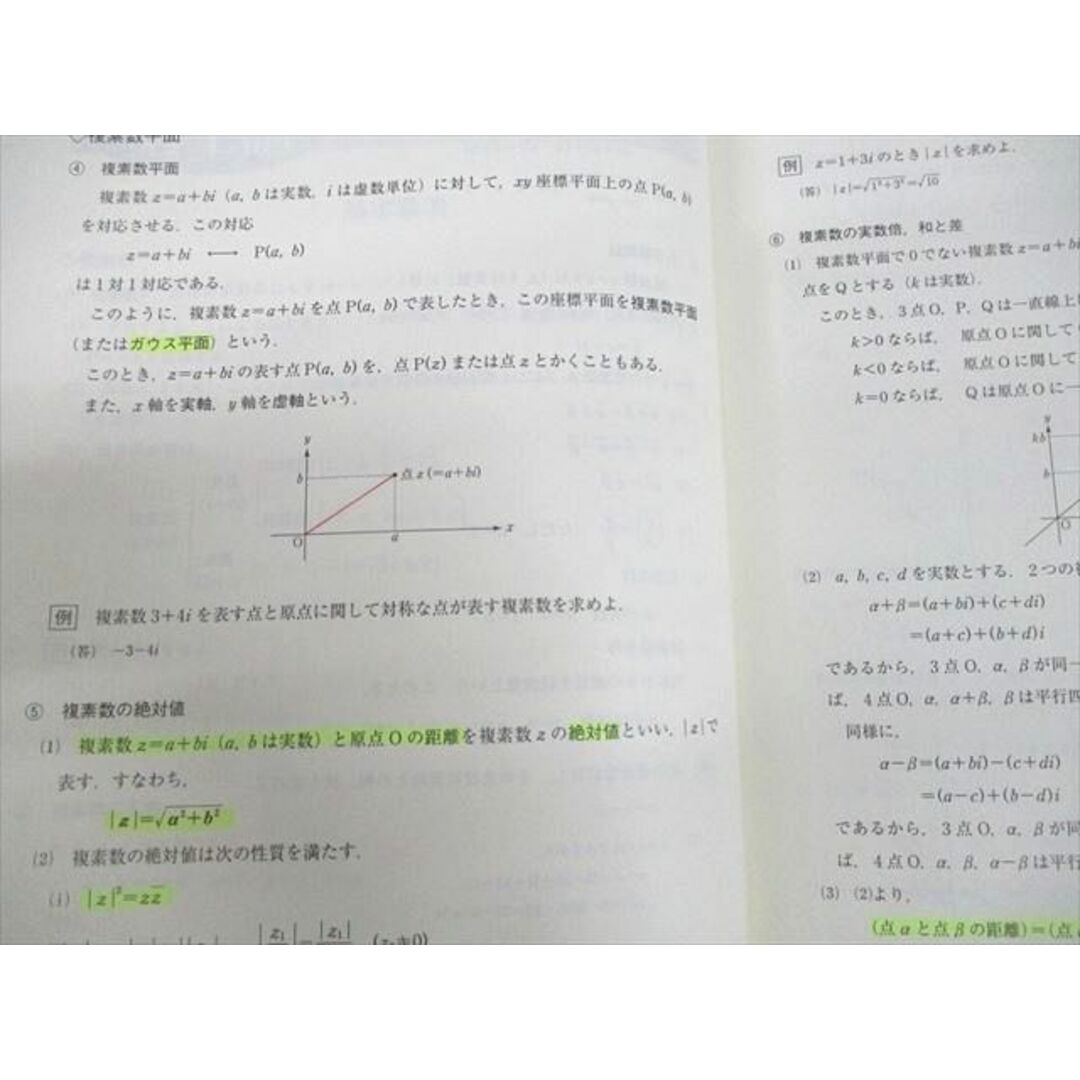 ◇複素数平面
④ 複素数平面
複素数 z=a+bi (a, b は実数, i は虚数単位) に対して, xy 座標平面上の点 P(a, b)
を対応させる. この対応
z=a+bi ⟷ P(a, b)
は1対1対応である.
このように, 複素数 z=a+bi を点 P(a, b) で表したとき, この座標平面を複素数平面
(またはガウス平面) という.
このとき, z=a+bi の表す点 P(a, b) を, 点 P(z) または点 z とかくこともある.
また, x 軸を実軸, y 軸を虚軸という.
y
b
点 z (=a+bi)
O
a
x
例 複素数 3+4i を表す点と原点に関して対称な点が表す複素数を求めよ.
(答) −3−4i
⑤ 複素数の絶対値
(1) 複素数 z=a+bi (a, b は実数) と原点 O の距離を複素数 z の絶対値といい, |z| で
表す. すなわち,
|z|=√(a²+b²)
(2) 複素数の絶対値は次の性質を満たす.
(i) |z|²=zz̄
|z₁/z₂|=|z₁|
例 z=1+3i のとき |z| を求めよ.
(答) |z|=√(1²+3²)=√10
⑥ 複素数の実数倍, 和と差
(1) 複素数平面で 0 でない複素数 z=a+bi
点を Q とする (k は実数).
このとき, 3点 O, P, Q は一直線上
k>0 ならば, 原点 O に関して
k<0 ならば, 原点 O に関して
k=0 ならば, Q は原点 O に一
y
kb
b
O
(2) a, b, c, d を実数とする. 2つの
α+β=(a+bi)+(c+di)
=(a+c)+(b+d)i
であるから, 3点 O, α, β が同一
ば, 4点 O, α, α+β, β は平行四
同様に,
α−β=(a+bi)−(c+di)
=(a−c)+(b−d)i
であるから, 3点 O, α, β が同
ば, 4点 O, α, β, α−β は平行
(3) (2)より,
(点 α と点 β の距離)=(点